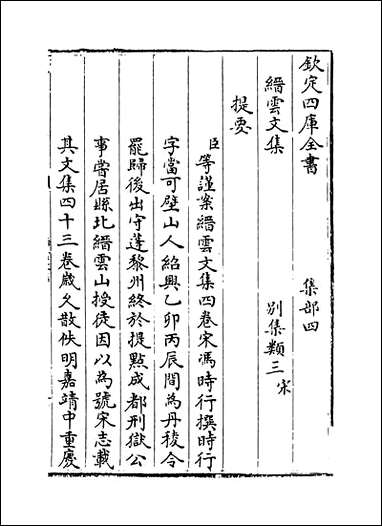 欽定四庫全書　集部四
縉雲文集　別集類三宋
提要
臣等謹案縉雲文集四卷宋馮時行撰時行
字當可壁山人紹興乙卯丙辰間為丹稜令
罷歸後出守蓬黎州終於提點成都刑獄公
事嘗居縣北縉雲山授徒因以為號宋志載
其文集四十三卷嵗久散佚明嘉靖中重慶